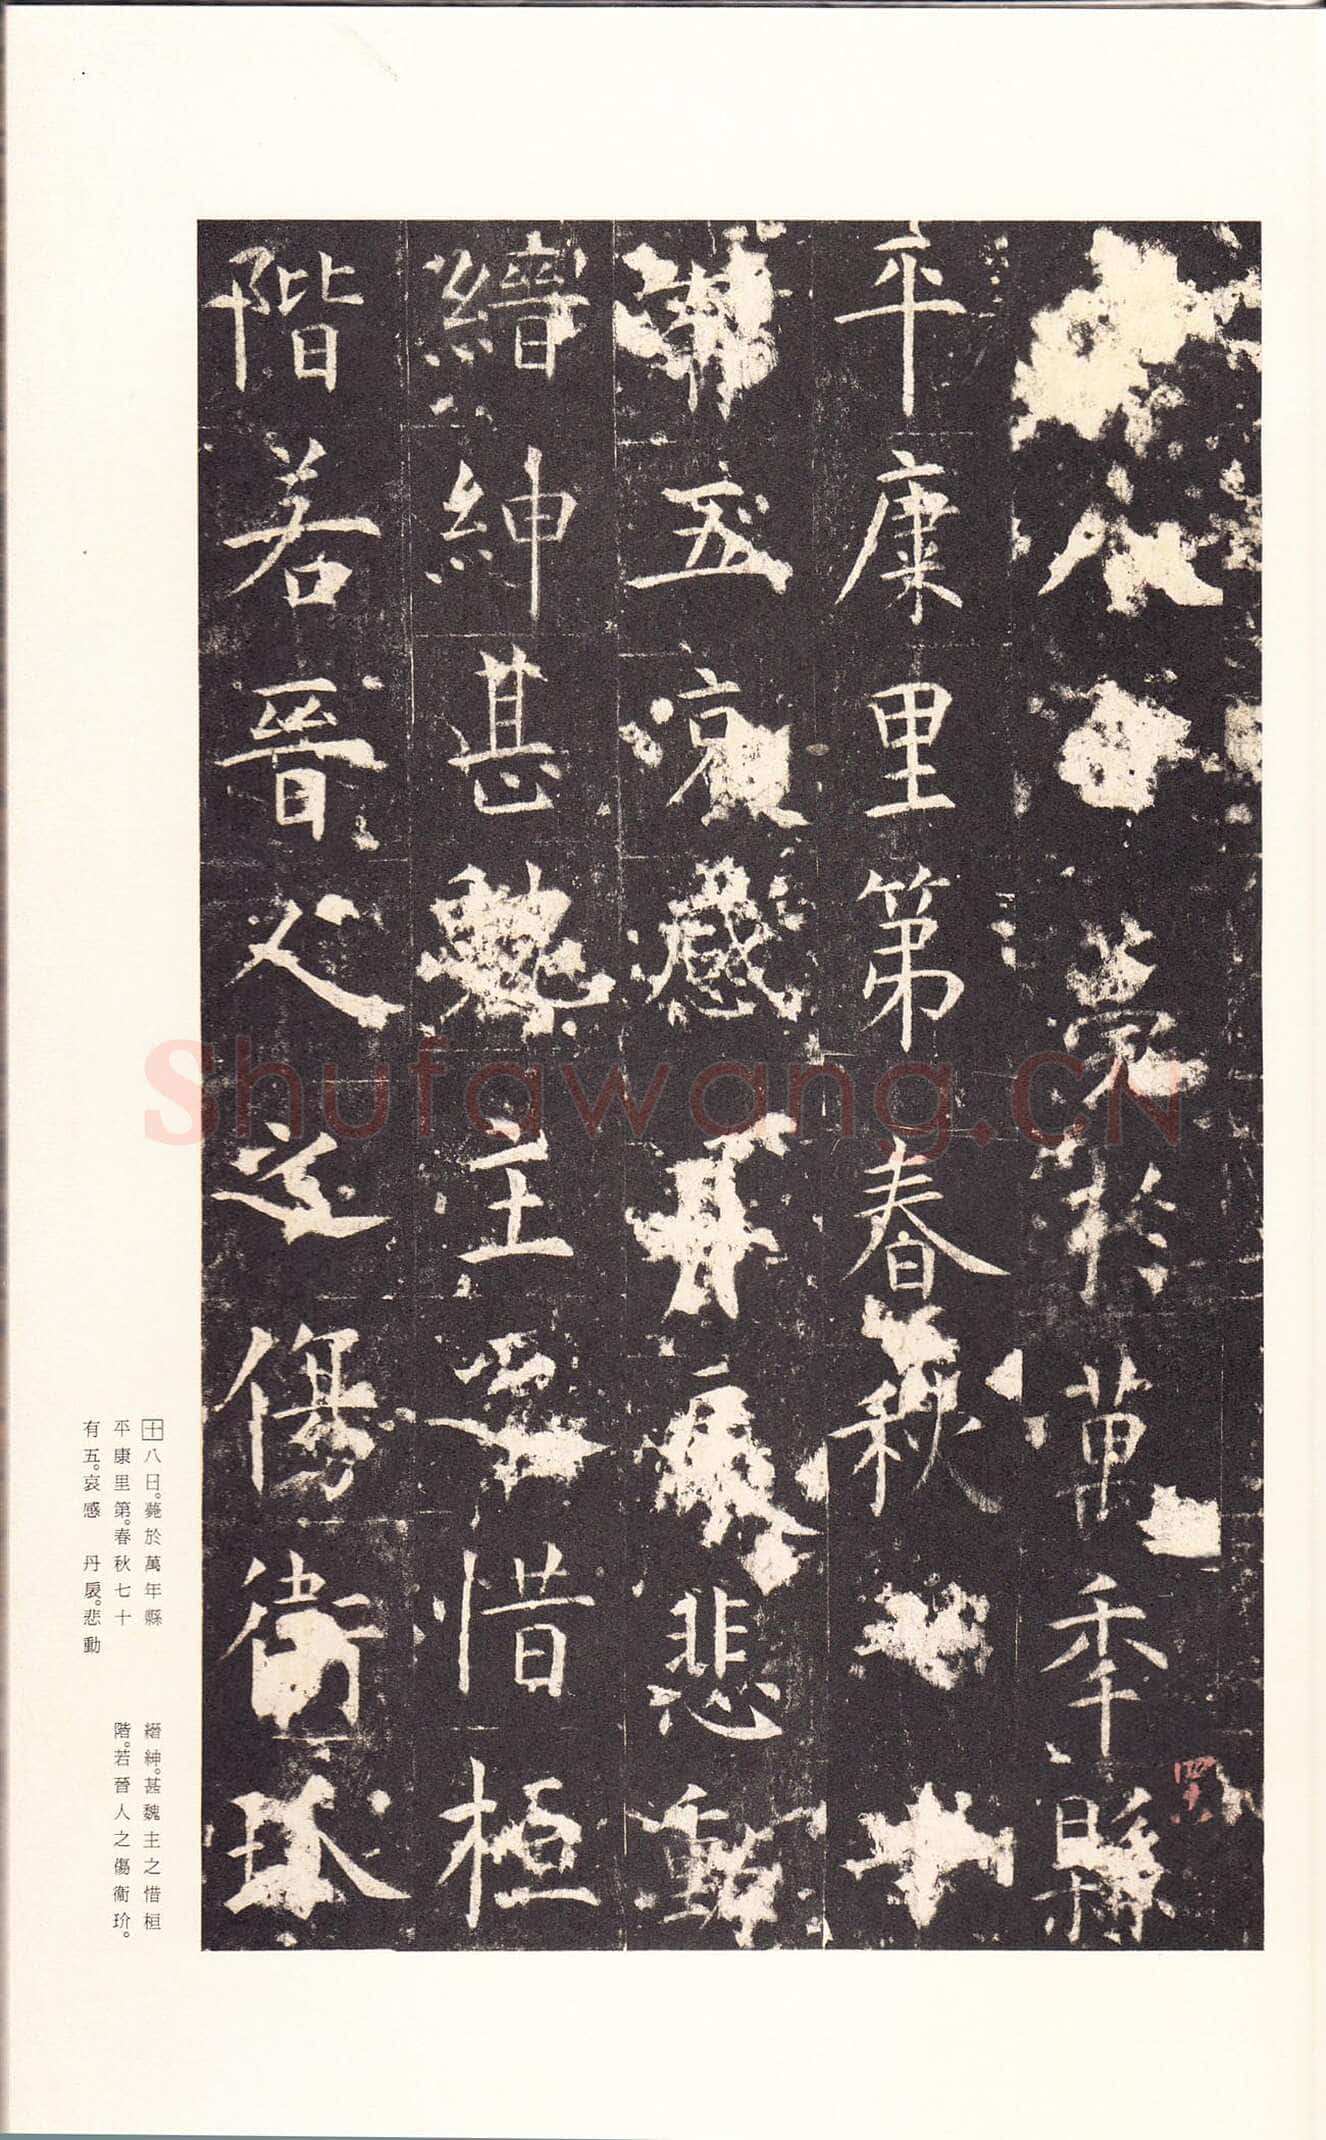 八日薨於萬年縣
平康里第春秋七十
有五哀感丹扆悲動
縉紳甚魏主之惜桓
階若晉人之傷衞玠
Shufawang.CN
十八日。薨於萬年縣
平康里第。春秋七十
有五。哀感 丹扆。悲動
縉紳。甚魏主之惜桓
階。若晉人之傷衞玠。